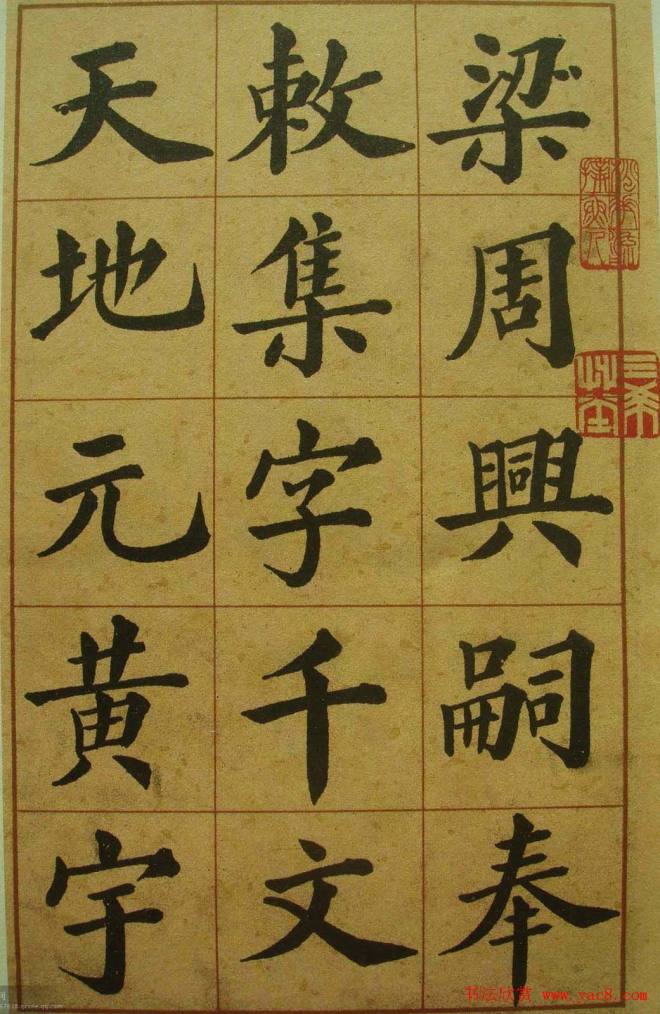 梁周興嗣奉
敕集字千文
天地元黃宇
书法欣赏 www.yac8.com